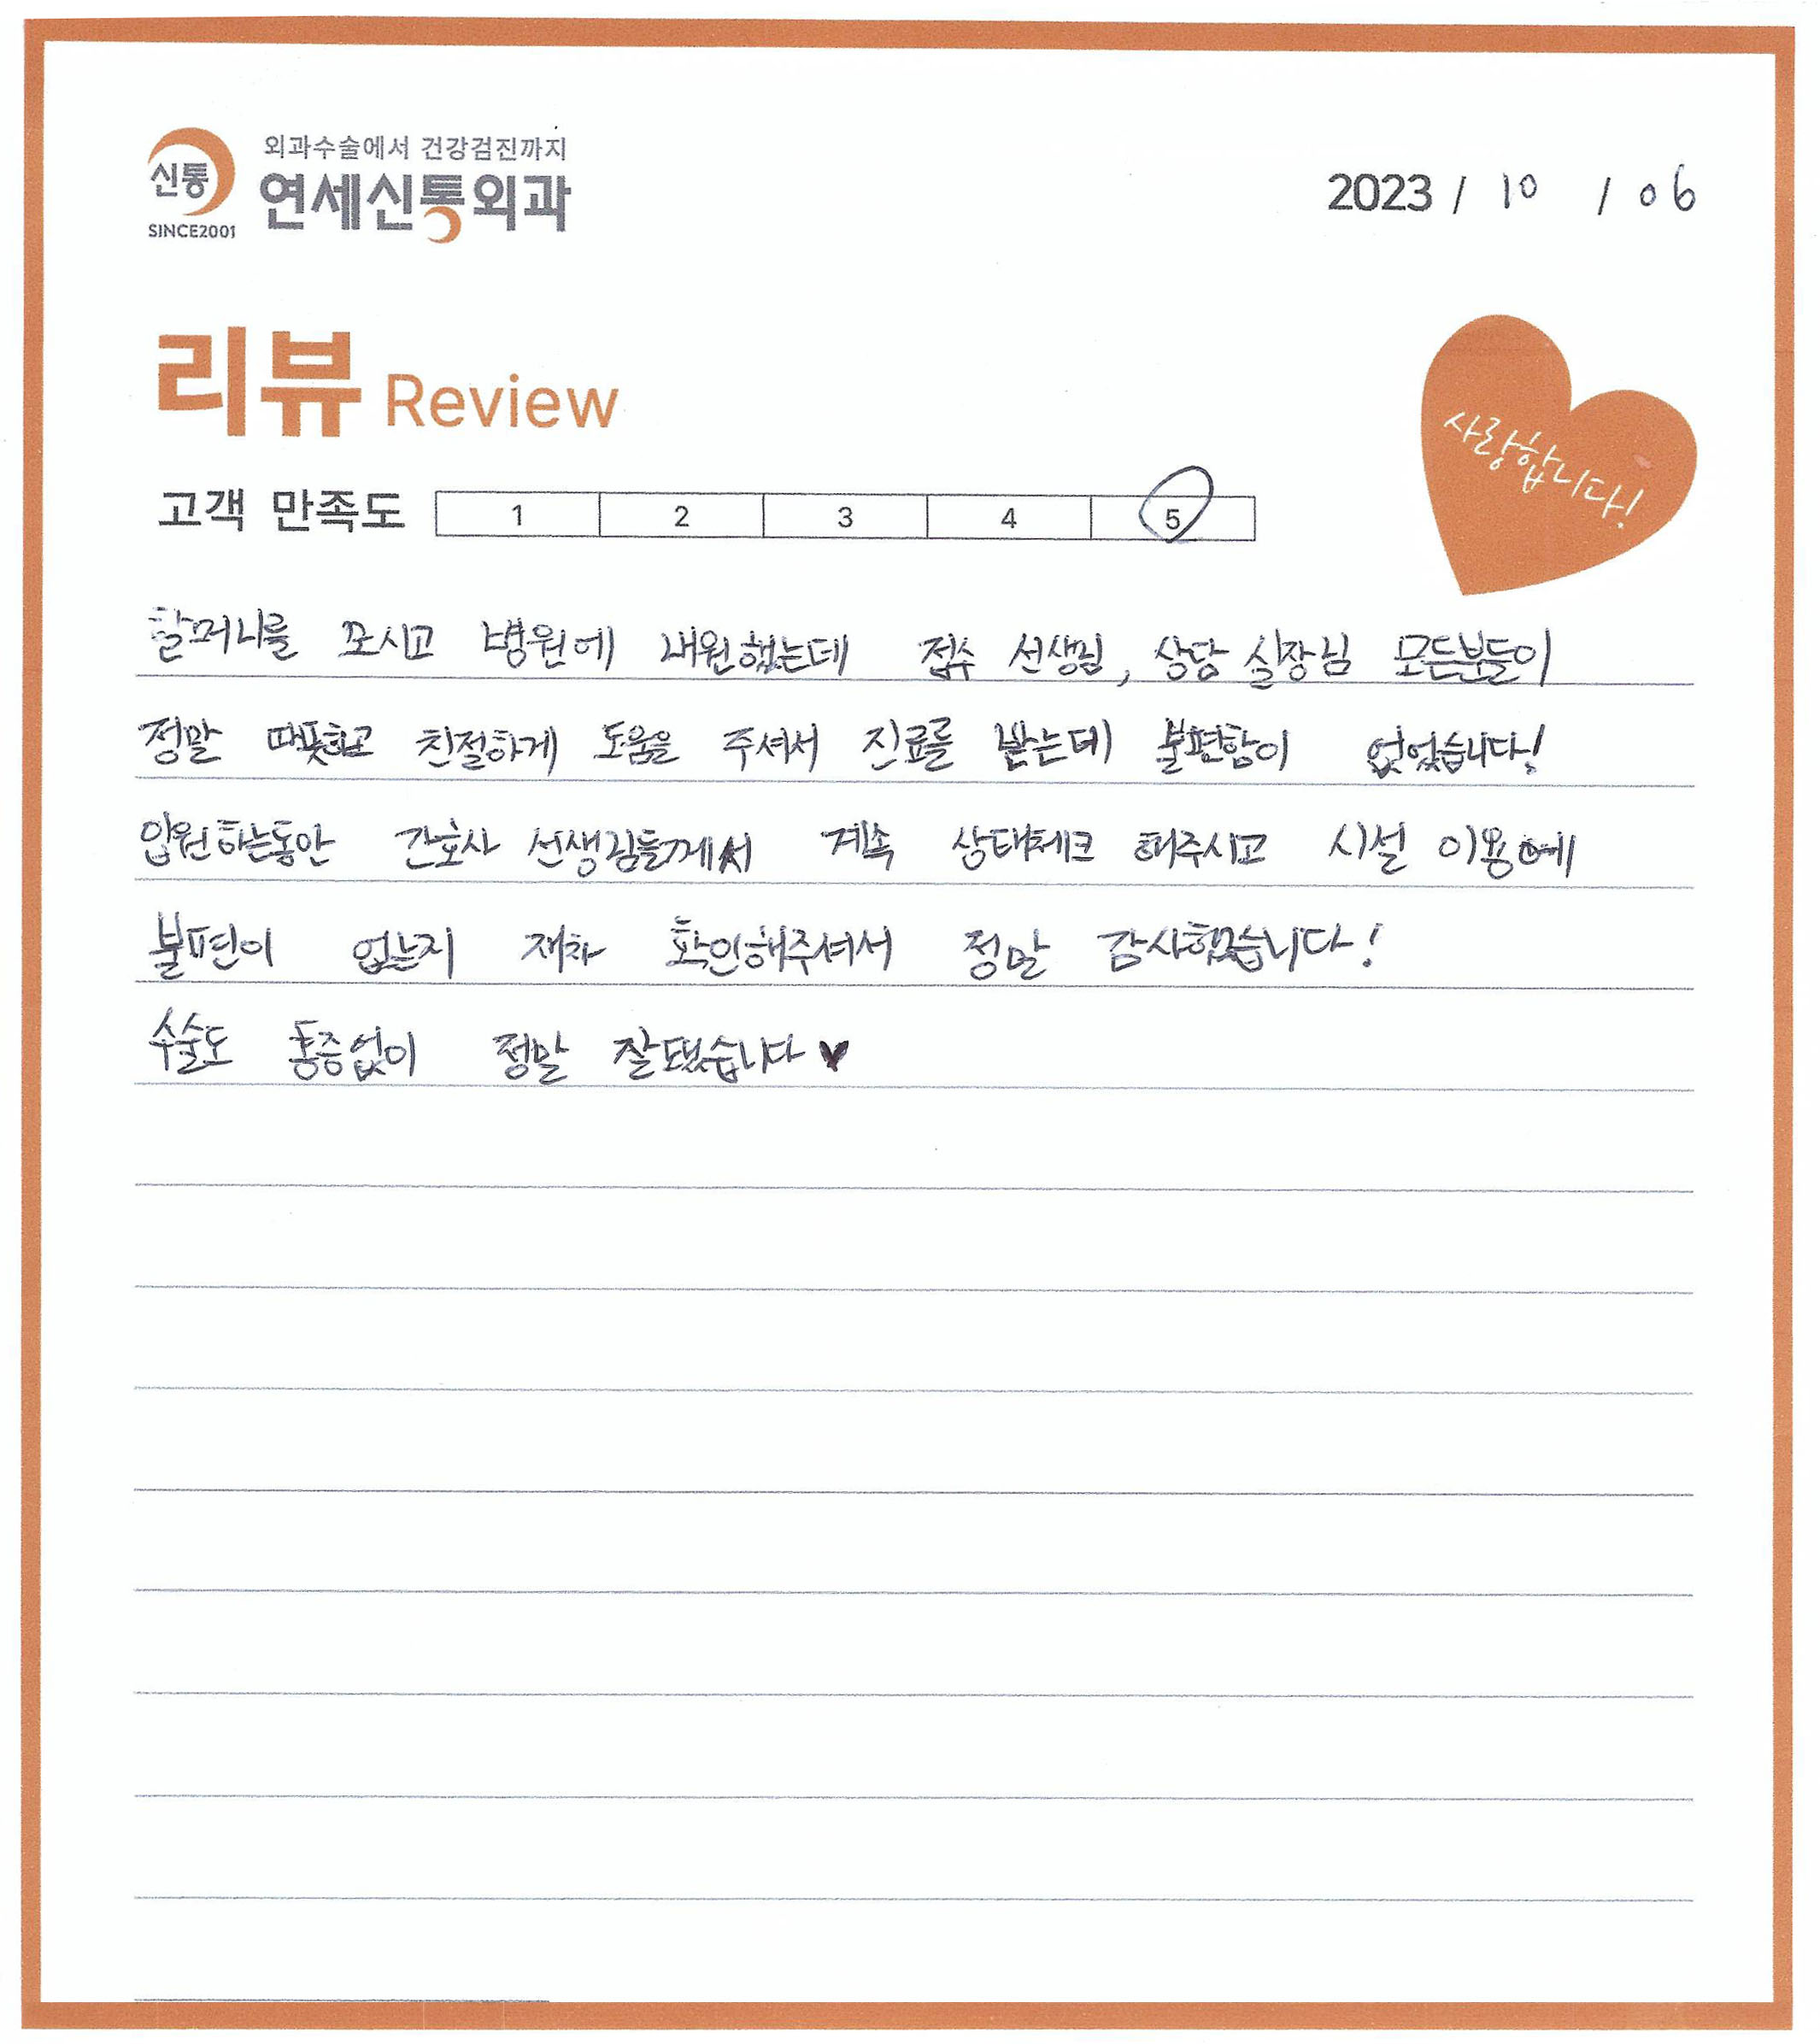 외과수술에서 건강검진까지
신통
연세신통외과
SINCE2001
2023 / 10 / 06
리뷰 Review
사랑합니다!
고객 만족도 1 2 3 4 5
할머니를 모시고 병원에 내원했는데 접수 선생님, 상담 실장님 모든분들이
정말 따뜻하고 친절하게 도움을 주셔서 진료를 받는데 불편함이 없었습니다!
입원하는동안 간호사 선생님들께서 계속 상태체크 해주시고 시설 이용에
불편이 없는지 재차 확인해주셔서 정말 감사했습니다!
수술도 통증없이 정말 잘됐습니다♥